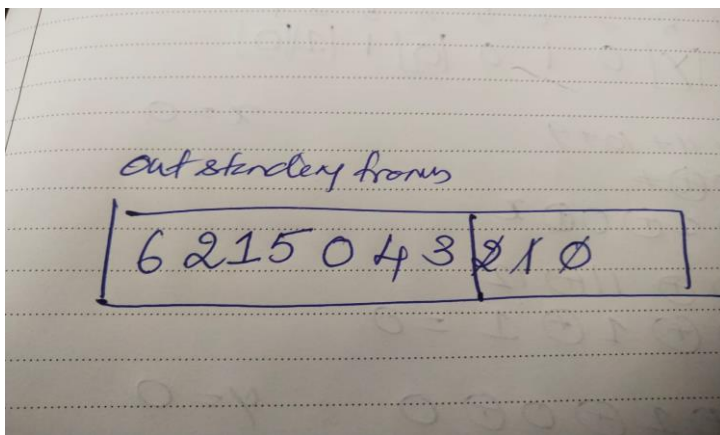 outstanding frames
6 2 1 5 0 4 3 2 1 0